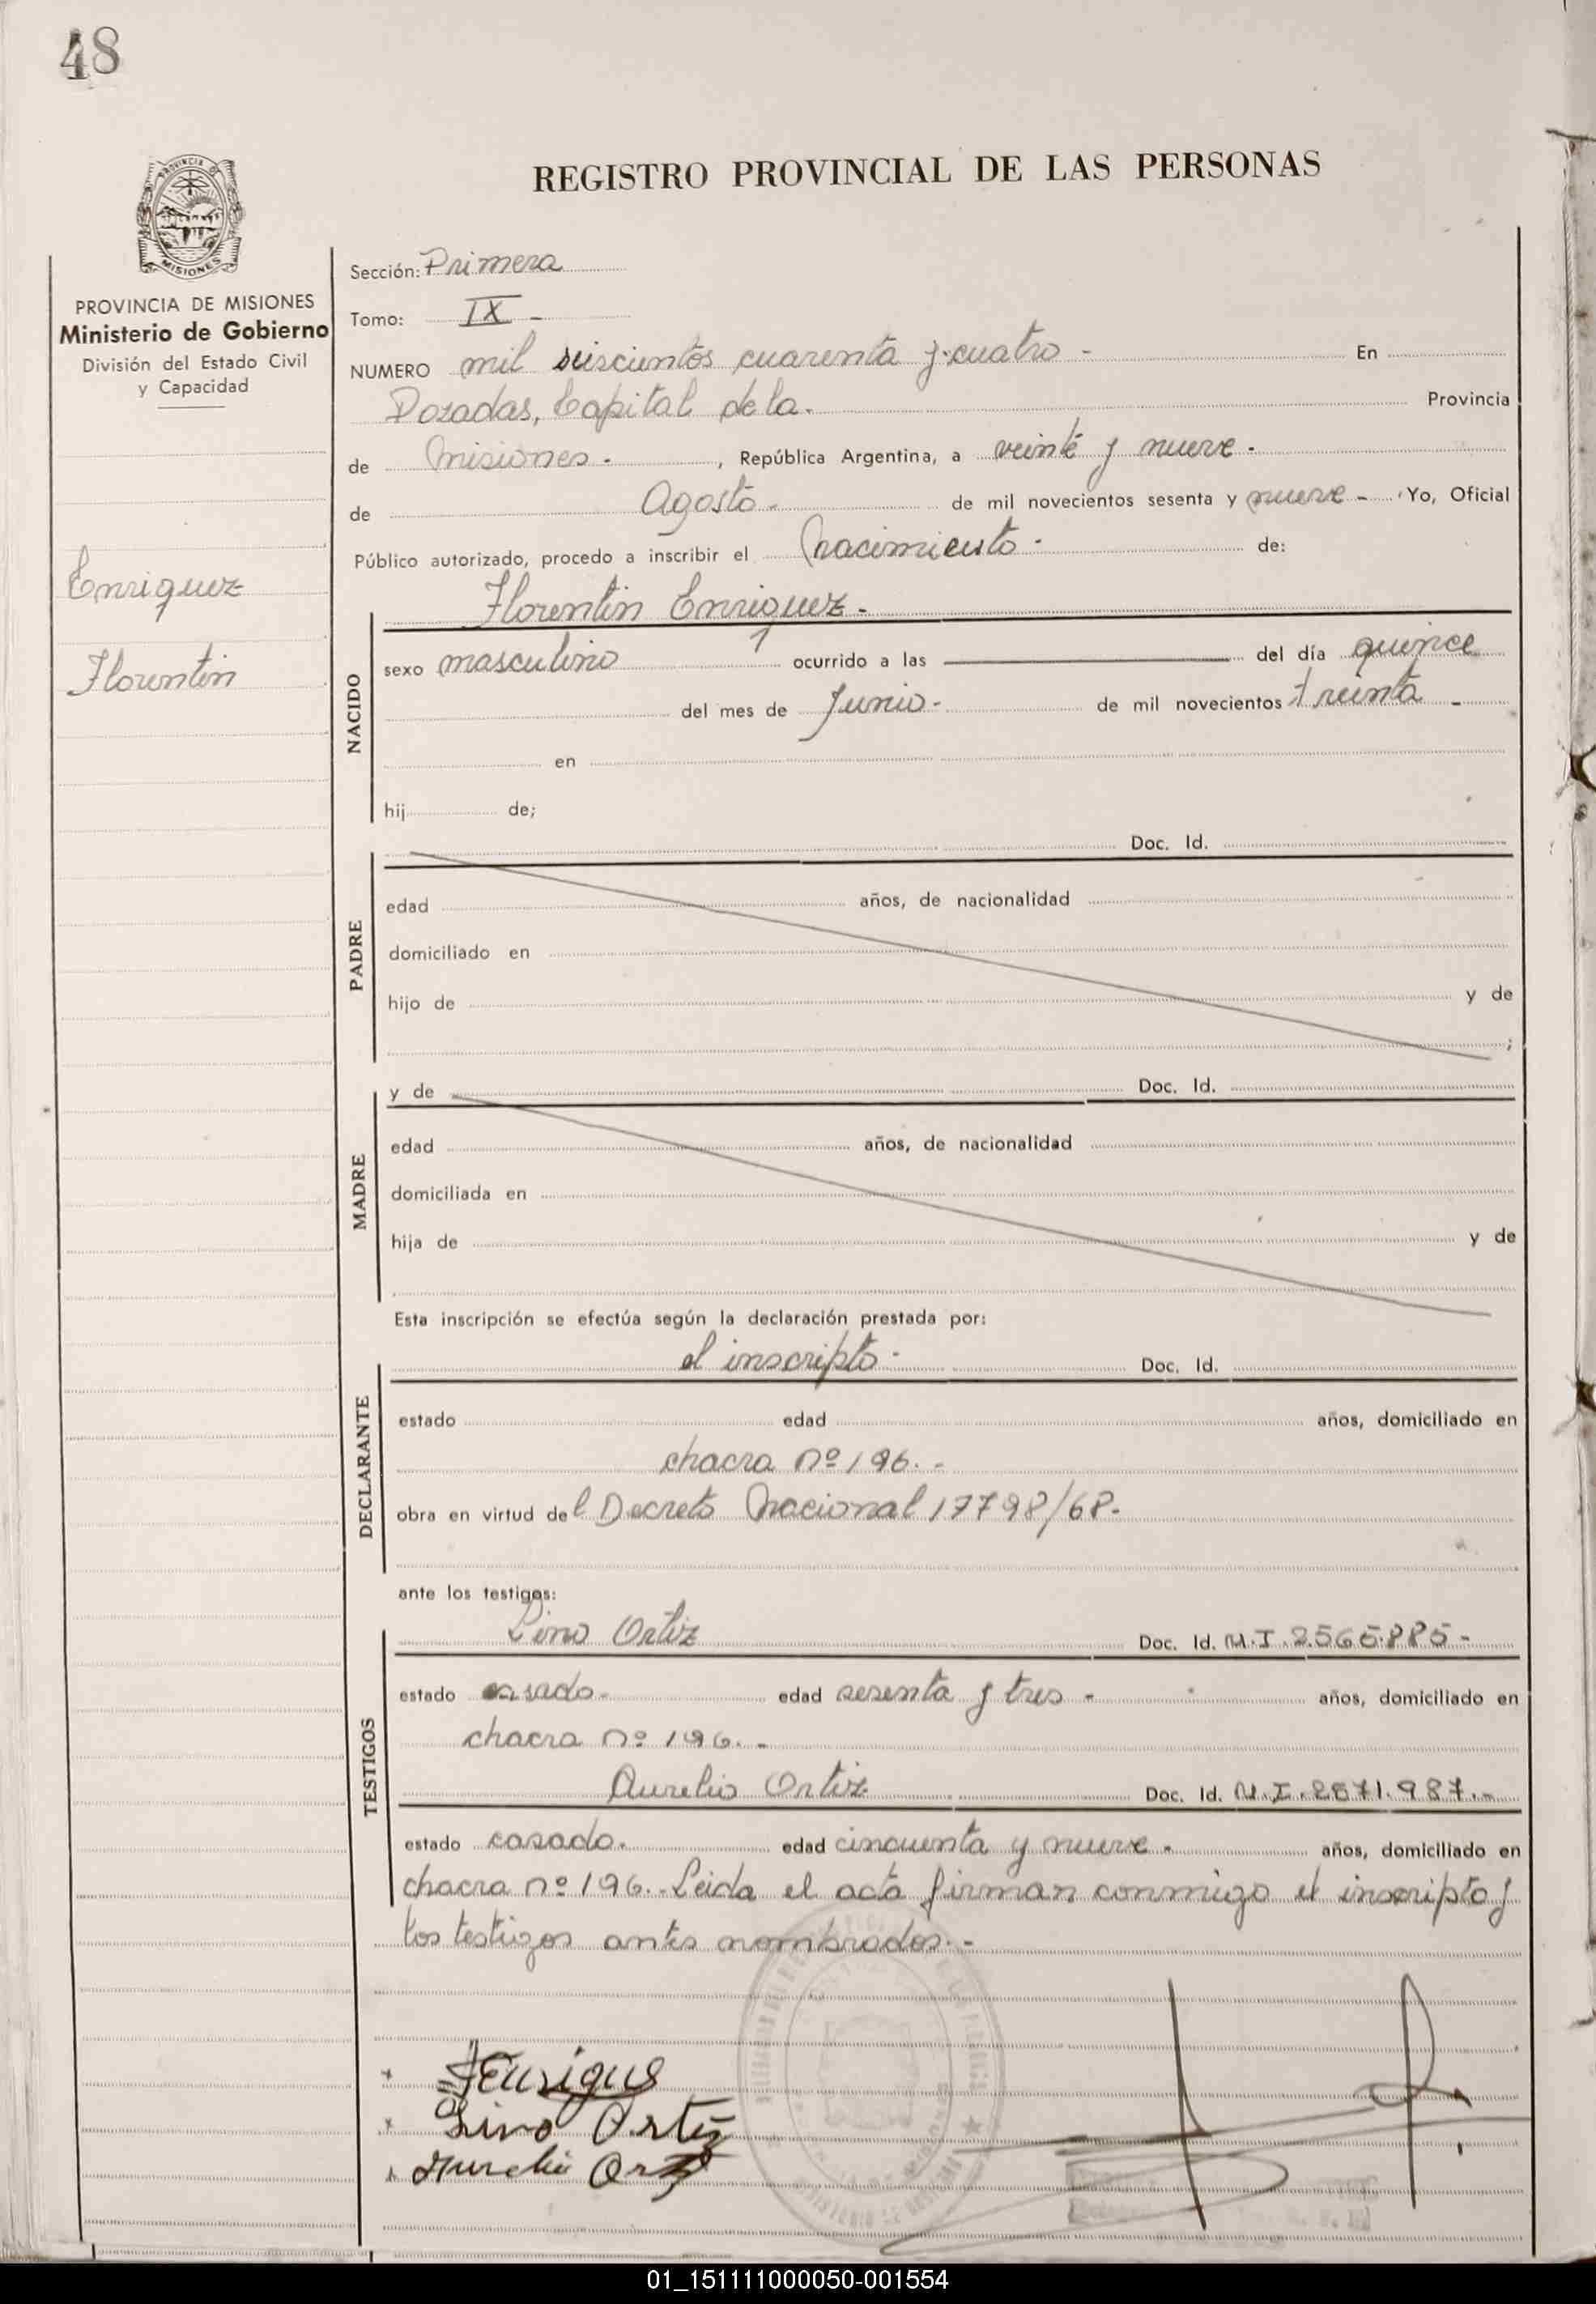 48
REGISTRO PROVINCIAL DE LAS PERSONAS
PROVINCIA
MISIONES
PROVINCIA DE MISIONES
Ministerio de Gobierno
División del Estado Civil
y Capacidad
Enriquez
Florentin
Sección: Primera
Tomo: IX -
NUMERO mil seiscientos cuarenta y cuatro - En
Posadas, Capital de la. Provincia
de Misiones - , República Argentina, a veinte y nueve -
de Agosto - de mil novecientos sesenta y nueve - Yo, Oficial
Público autorizado, procedo a inscribir el Nacimiento - de:
Florentin Enriquez -
NACIDO
sexo masculino ocurrido a las del día quince
del mes de Junio - de mil novecientos treinta -
en
hij de;
Doc. Id.
PADRE
edad años, de nacionalidad
domiciliado en
hijo de y de
;
y de Doc. Id.
MADRE
edad años, de nacionalidad
domiciliada en
hija de y de
Esta inscripción se efectúa según la declaración prestada por:
el inscripto - Doc. Id.
DECLARANTE
estado edad años, domiciliado en
chacra nº 196. -
obra en virtud del Decreto Nacional 17798/68-
ante los testigos:
Lino Ortiz Doc. Id. M.I. 2.565.885 -
TESTIGOS
estado casado - edad sesenta y tres - años, domiciliado en
chacra nº 196. -
Aurelio Ortiz Doc. Id. M.I. 2571.987. -
estado casado. edad cincuenta y nueve - años, domiciliado en
chacra nº 196. - Leida el acta firman conmigo el inscripto y
los testigos antes nombrados. -
Lino Ortiz
Aurelio Ortiz
01_151111000050-001554